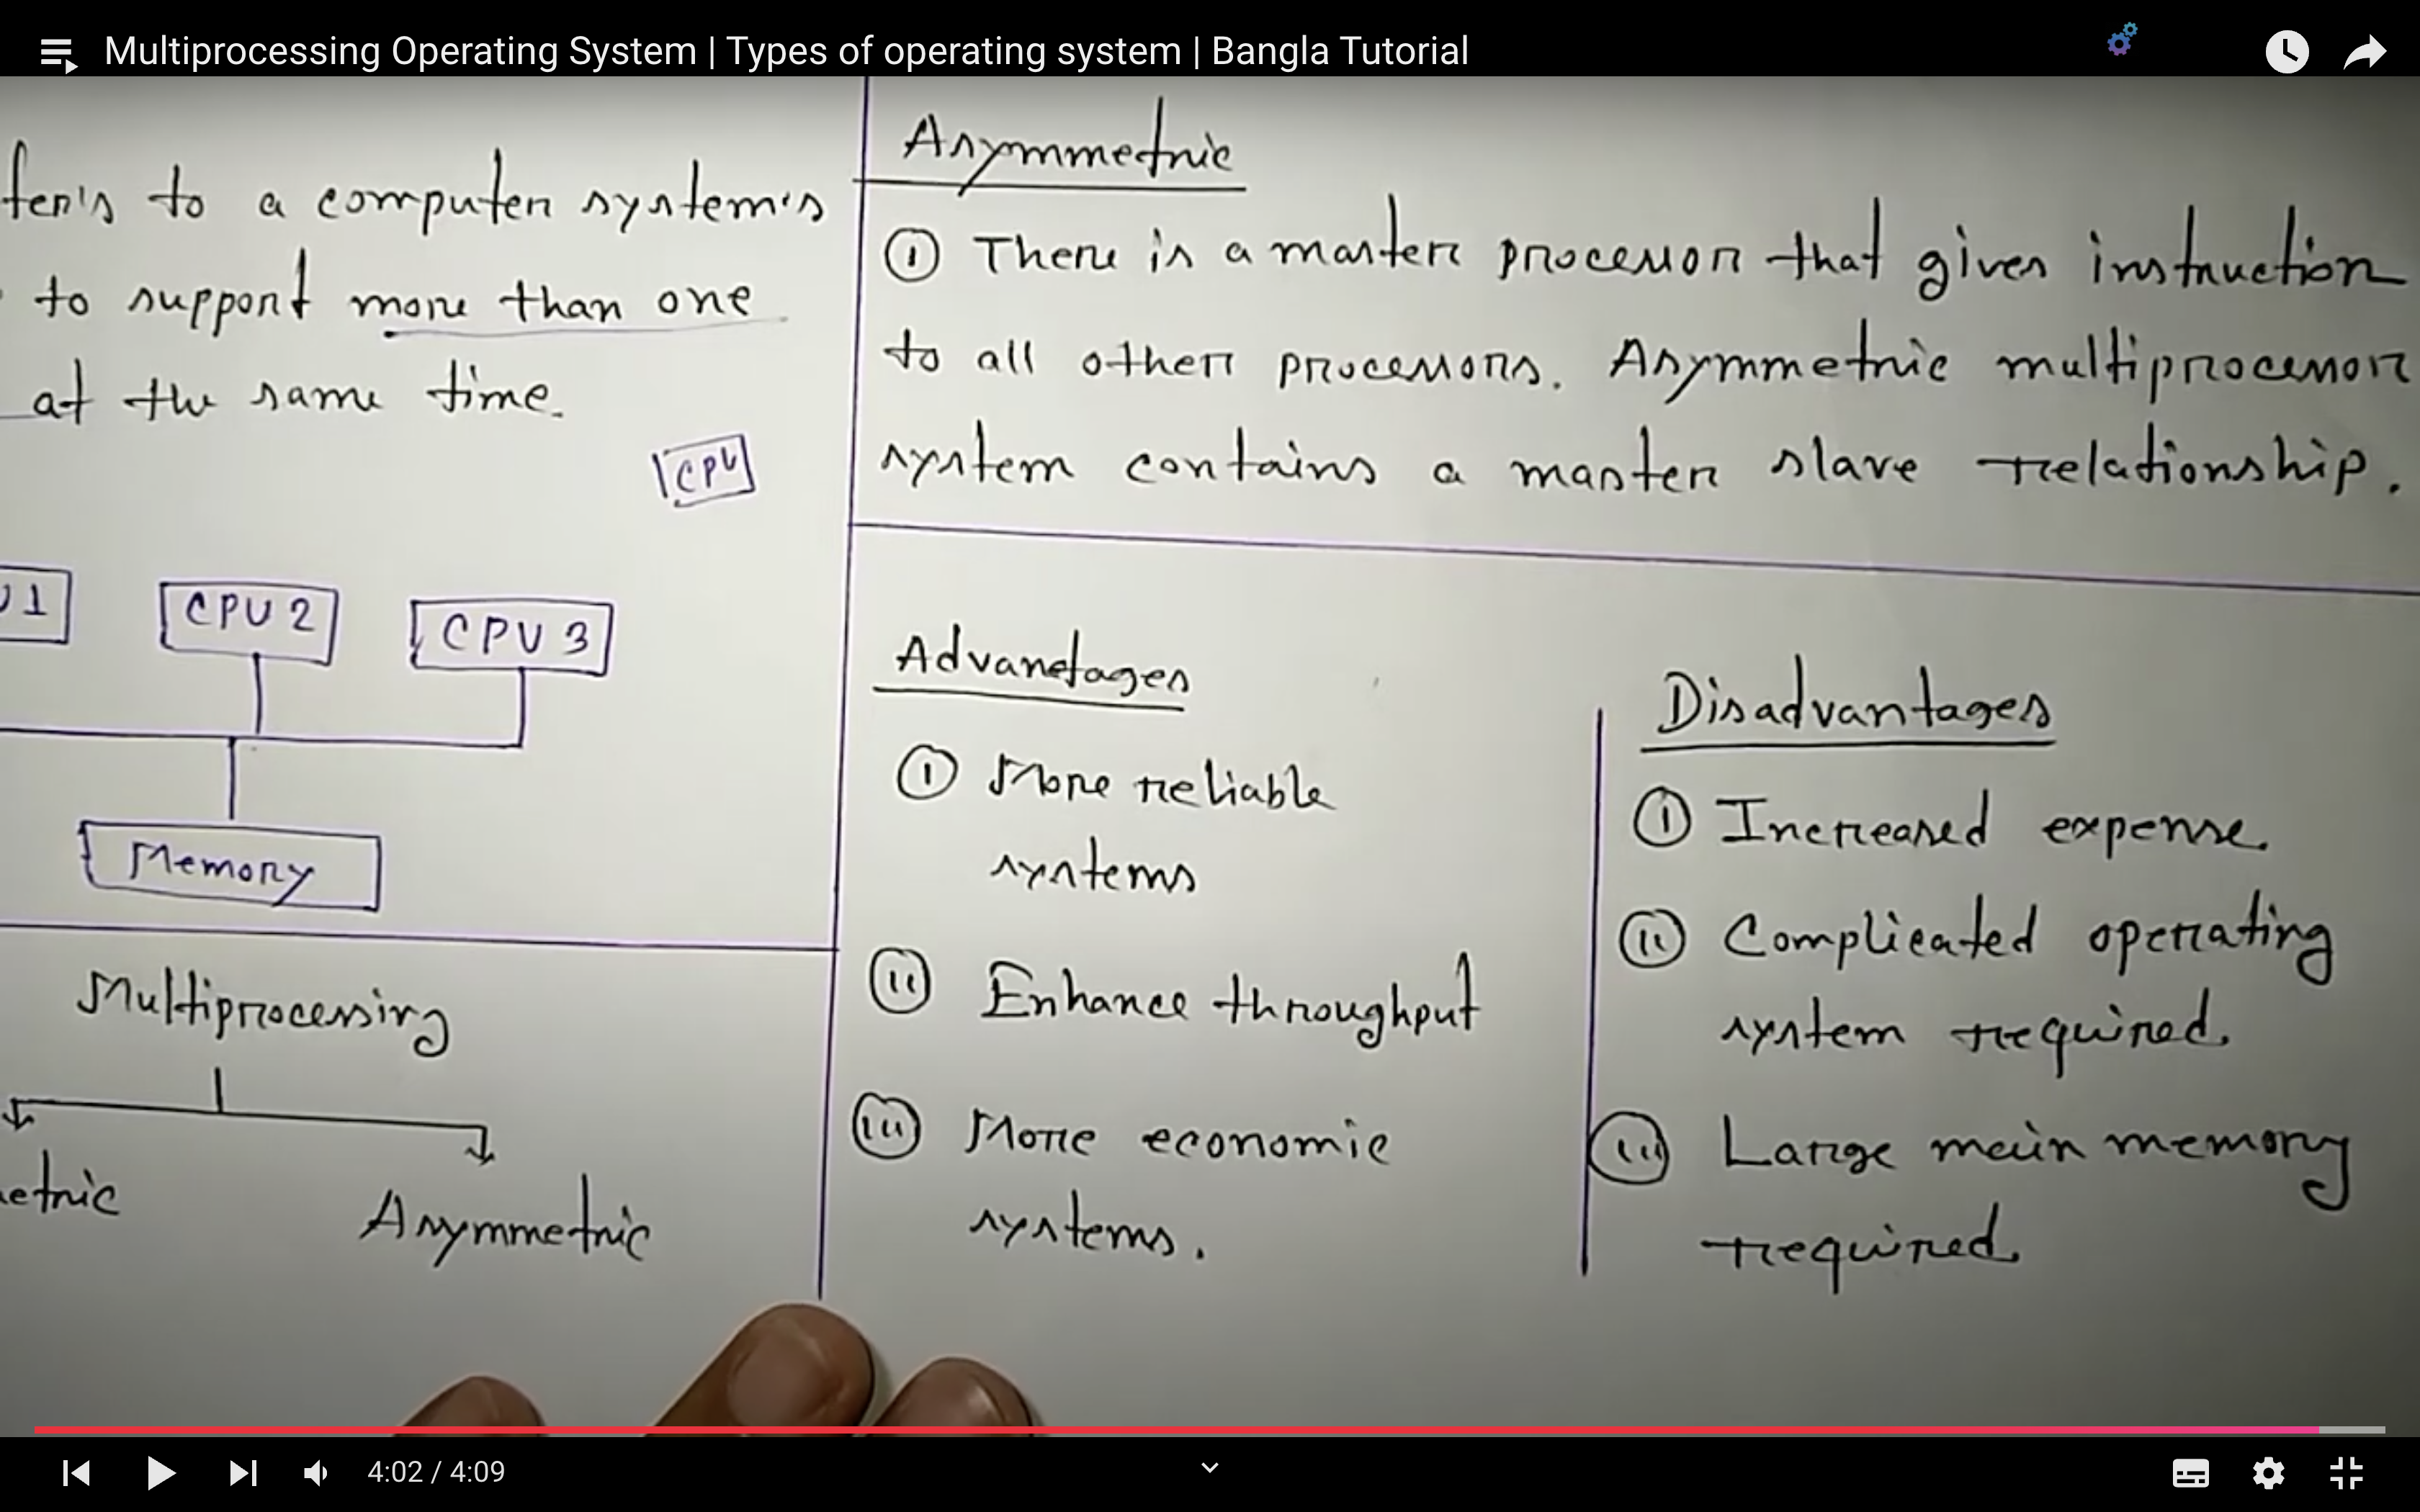 Multiprocessing Operating System | Types of operating system | Bangla Tutorial
fer's to a computer system's
to support more than one
at the same time.
CPU
U1
CPU 2
CPU 3
Memory
Multiprocessing
etric
Asymmetric
Asymmetric
① There is a master processor that gives instruction
to all other processors. Asymmetric multiprocessor
system contains a master slave relationship.
Advanetages
① More reliable
systems
ⓘⓘ Enhance throughput
ⓘⓘⓘ More economic
systems.
Disadvantages
① Increased expense.
ⓘⓘ Complicated operating
system required.
ⓘⓘⓘ Large main memory
required.
4:02 / 4:09